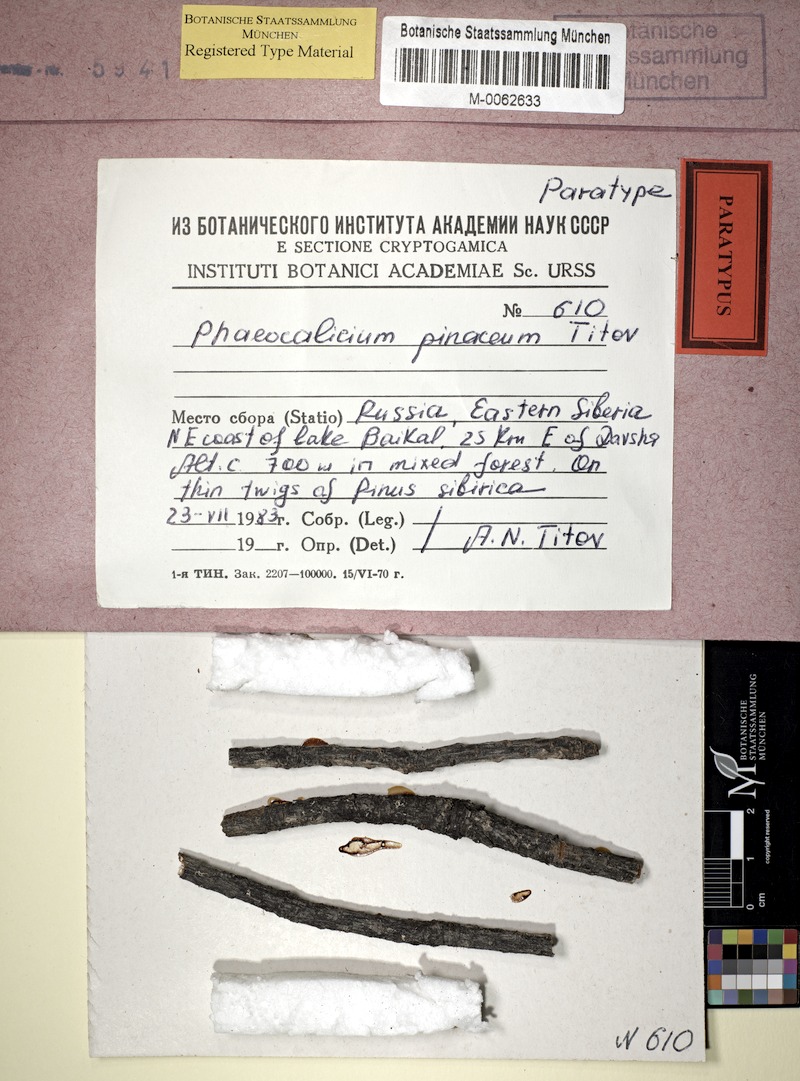 BOTANISCHE STAATSSAMMLUNG
MÜNCHEN
Registered Type Material
Botanische Staatssammlung München
M-0062633
tanische
ssammlung
ünchen
5941
Paratype
PARATYPUS
ИЗ БОТАНИЧЕСКОГО ИНСТИТУТА АКАДЕМИИ НАУК СССР
E SECTIONE CRYPTOGAMICA
INSTITUTI BOTANICI ACADEMIAE Sc. URSS
№ 610
Phaeocalicium pinaceum Titov
Место сбора (Statio) Russia, Eastern Siberia
NE coast of lake Baikal, 25 km E of Davsha
Alt. c. 700 m in mixed forest. On
thin twigs of Pinus sibirica
23-VII 1983г. Собр. (Leg.)
19 г. Опр. (Det.) A.N. Titov
1-я ТИН. Зак. 2207—100000. 15/VI-70 г.
BOTANISCHE
STAATSSAMMLUNG
MÜNCHEN
copyright reserved
0 1 2
cm
N 610